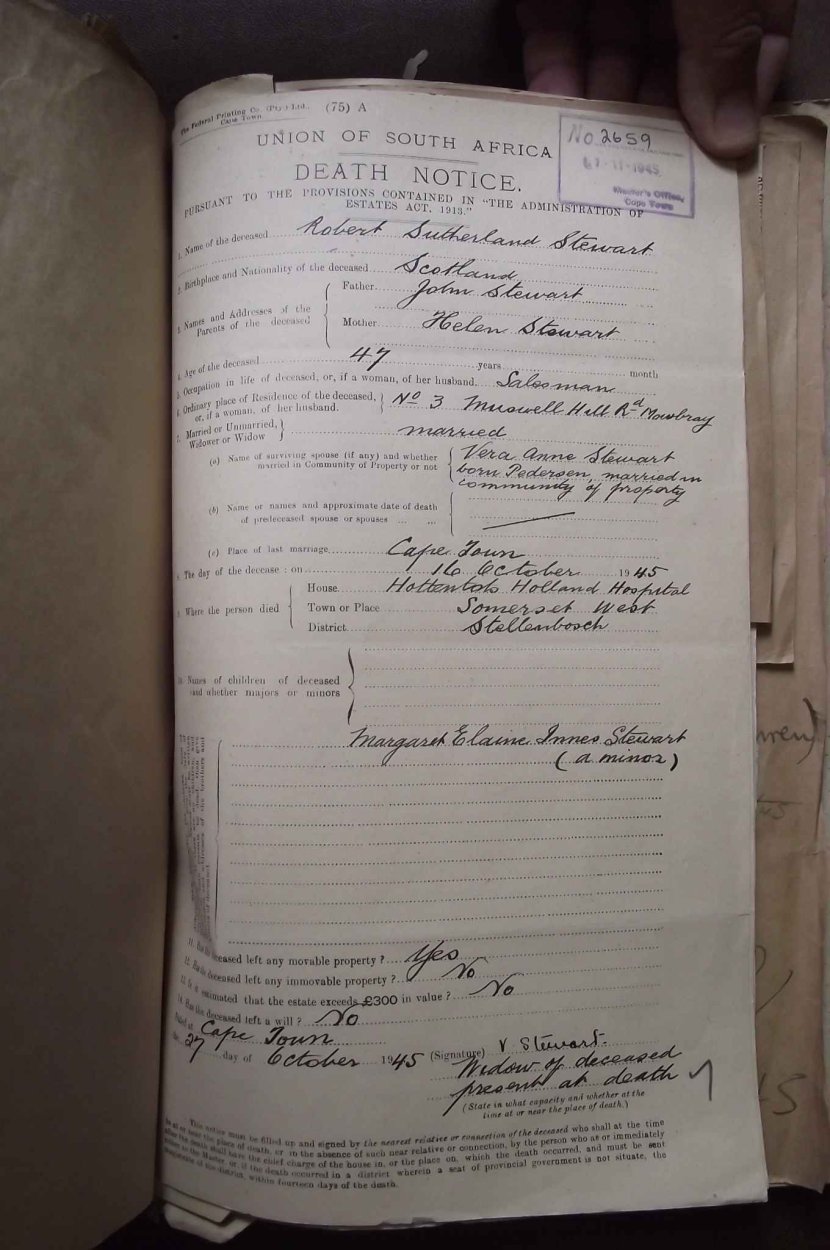 The Federal Printing Co. (Pty.) Ltd., (75) A
Cape Town
UNION OF SOUTH AFRICA
No. 2659
-11-1945
Master's Office,
Cape Town
DEATH NOTICE.
PURSUANT TO THE PROVISIONS CONTAINED IN "THE ADMINISTRATION OF
ESTATES ACT, 1913."
1. Name of the deceased Robert Sutherland Stewart
2. Birthplace and Nationality of the deceased Scotland
3. Names and Addresses of the Parents of the deceased
Father John Stewart
Mother Helen Stewart
4. Age of the deceased 47 years month
5. Occupation in life of deceased, or, if a woman, of her husband Salesman
6. Ordinary place of Residence of the deceased, or, if a woman, of her husband. No 3 Muswell Hill Rd Mowbray
7. Married or Unmarried, Widower or Widow married
(a) Name of surviving spouse (if any) and whether married in Community of Property or not
Vera Anne Stewart
born Pedersen, married in
community of property
(b) Name or names and approximate date of death
of predeceased spouse or spouses ... ...
(c) Place of last marriage Cape Town
8. The day of the decease: on 16 October 1945
9. Where the person died
House Hottentots Holland Hospital
Town or Place Somerset West
District Stellenbosch
10. Names of children of deceased
and whether majors or minors
Margaret Elaine Innes Stewart
(a minor)
11. Has the deceased left any movable property? Yes
12. Has the deceased left any immovable property? No
13. Is it estimated that the estate exceeds £300 in value? No
14. Has the deceased left a will? No
Dated at Cape Town
the 27 day of October 1945
(Signature) V Stewart.
Widow of deceased
present at death
(State in what capacity and whether at the
time at or near the place of death.)
This notice must be filled up and signed by the nearest relative or connection of the deceased who shall at the time
be at or near the place of death, or in the absence of such near relative or connection, by the person who at or immediately
after the death shall have the chief charge of the house in, or the place on, which the death occurred, and must be sent
either to the Master or, if the death occurred in a district wherein a seat of provincial government is not situate, the
magistrate of the district, within fourteen days of the death.